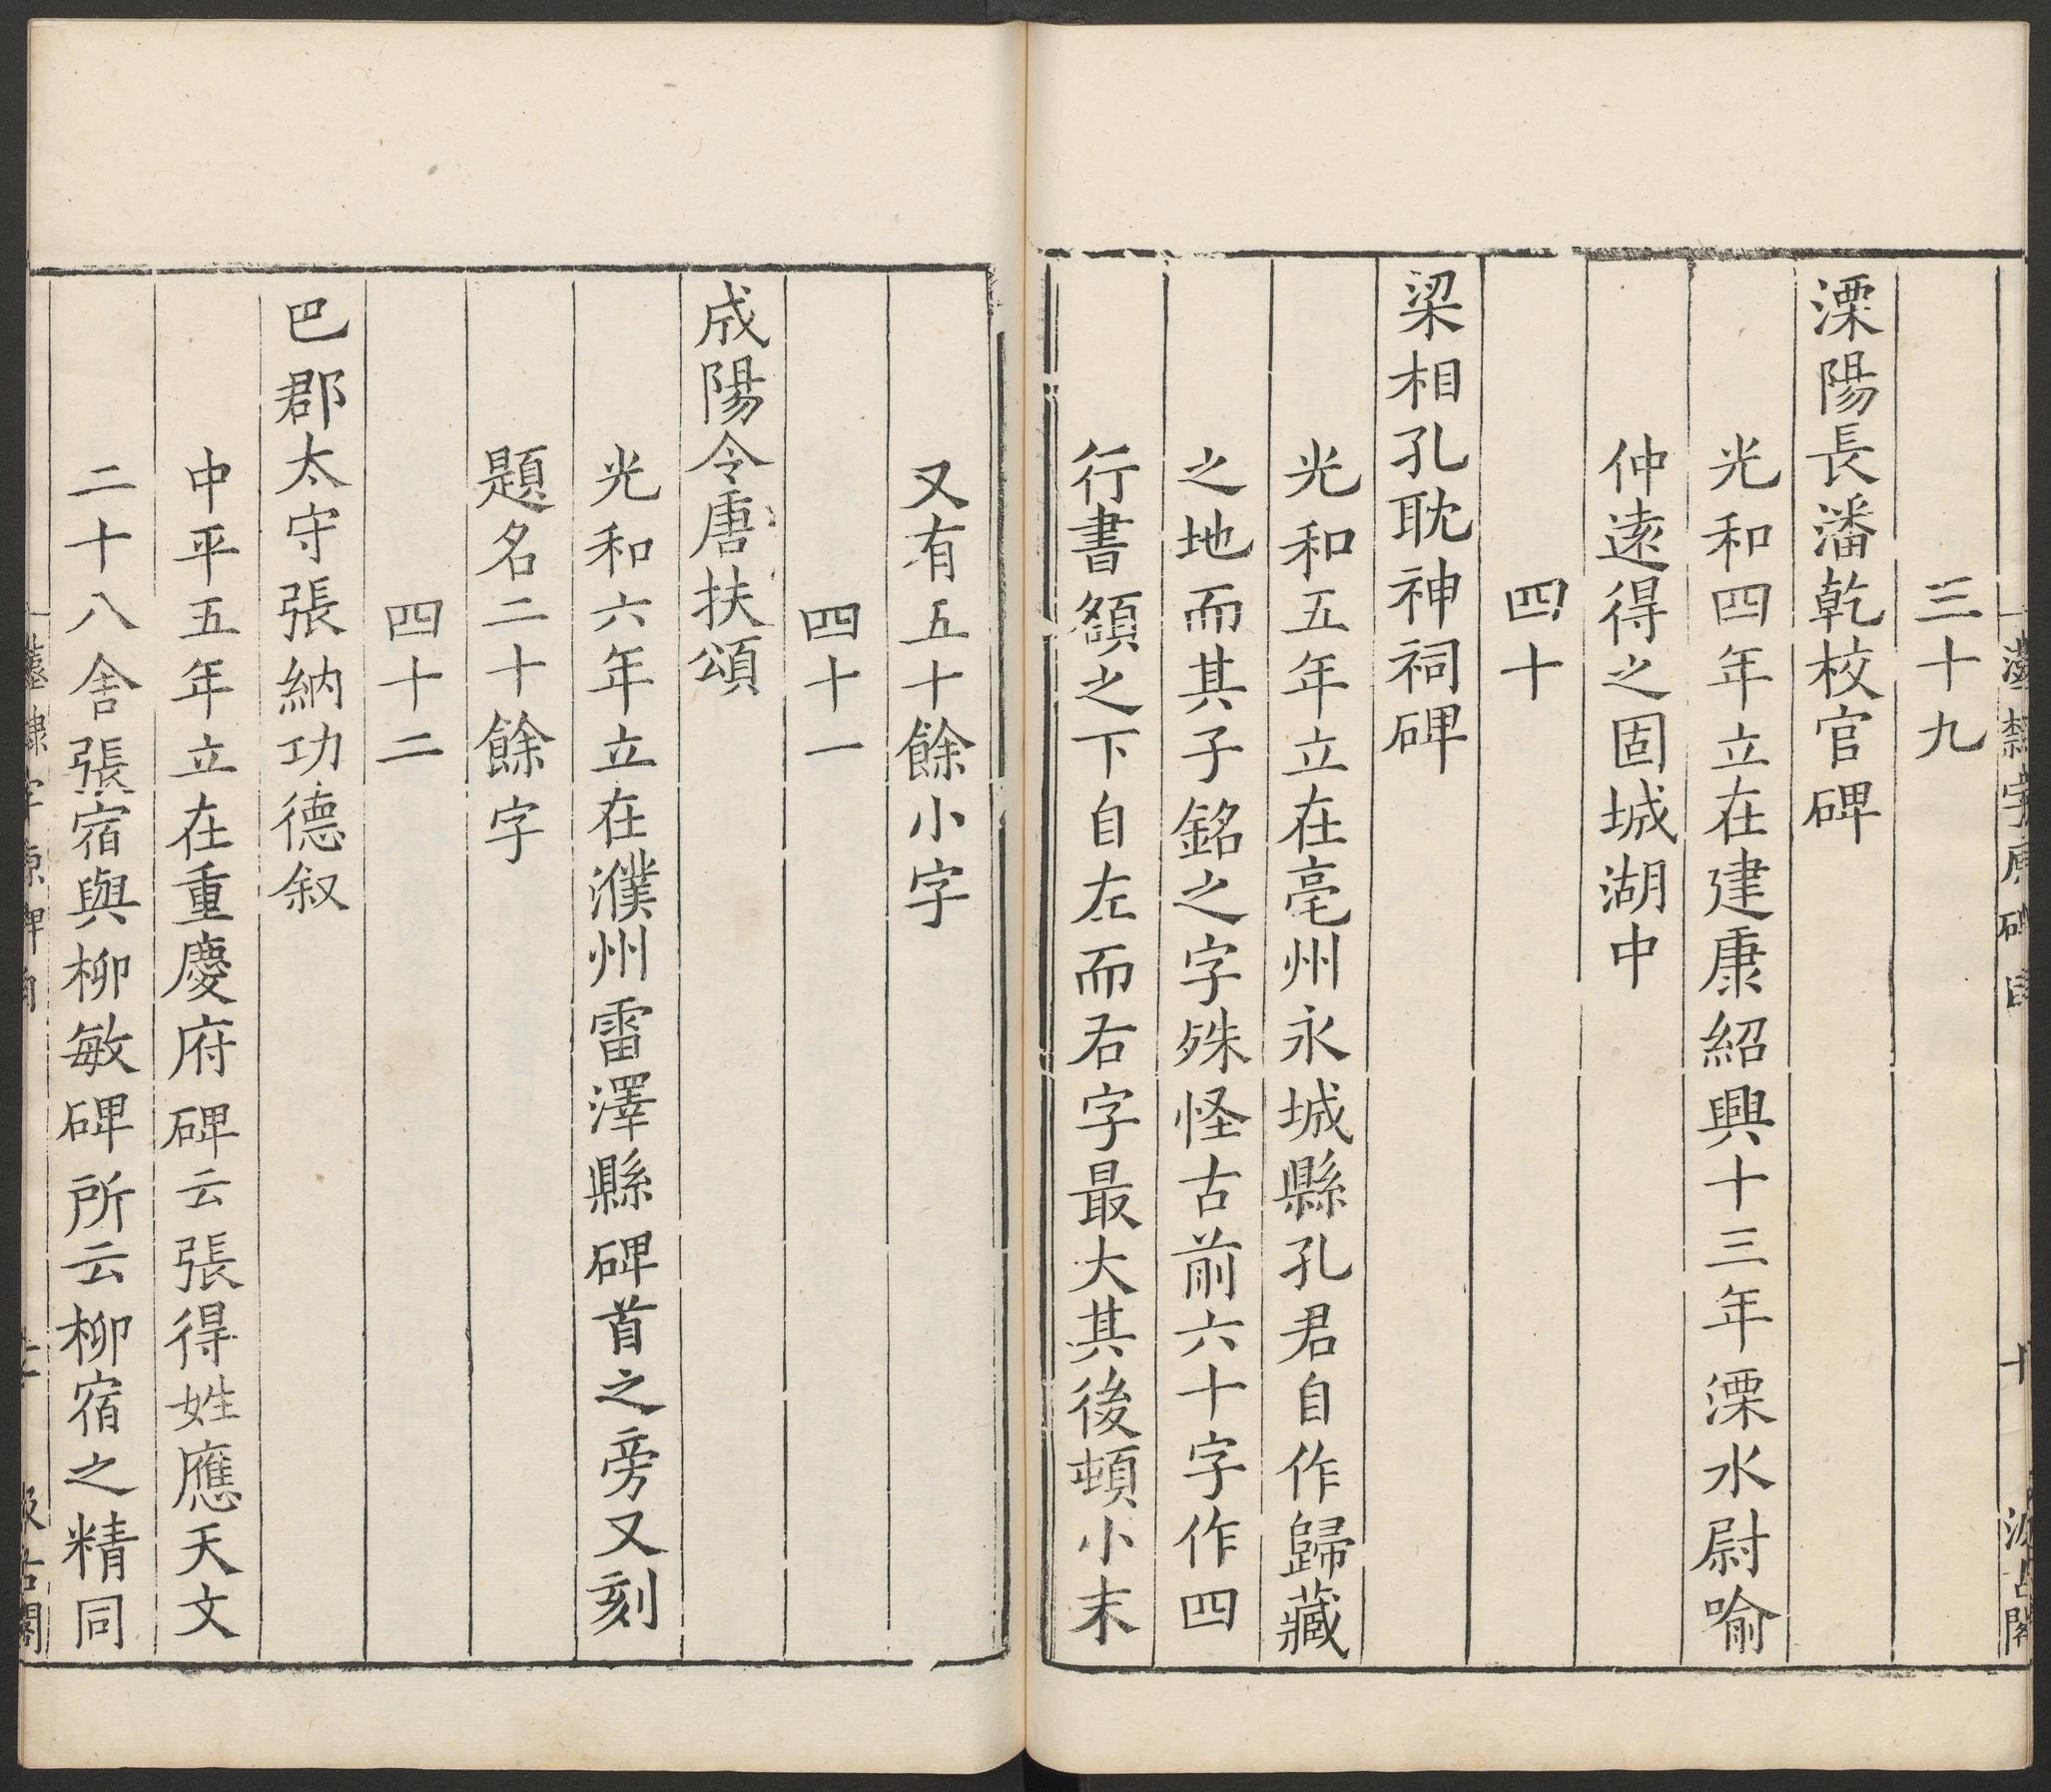 三十九
溧陽長潘乾校官碑
光和四年立在建康紹興十三年溧水尉喻
仲遠得之固城湖中
四十
梁相孔耽神祠碑
光和五年立在亳州永城縣孔君自作歸藏
之地而其子銘之字殊怪古前六十字作四
行書額之下自左而右字最大其後頓小末
又有五十餘小字
四十一
成陽令唐扶頌
光和六年立在濮州雷澤縣碑首之旁又刻
題名二十餘字
四十二
巴郡太守張納功德叙
中平五年立在重慶府碑云張得姓應天文
二十八舍張宿與柳敏碑所云柳宿之精同